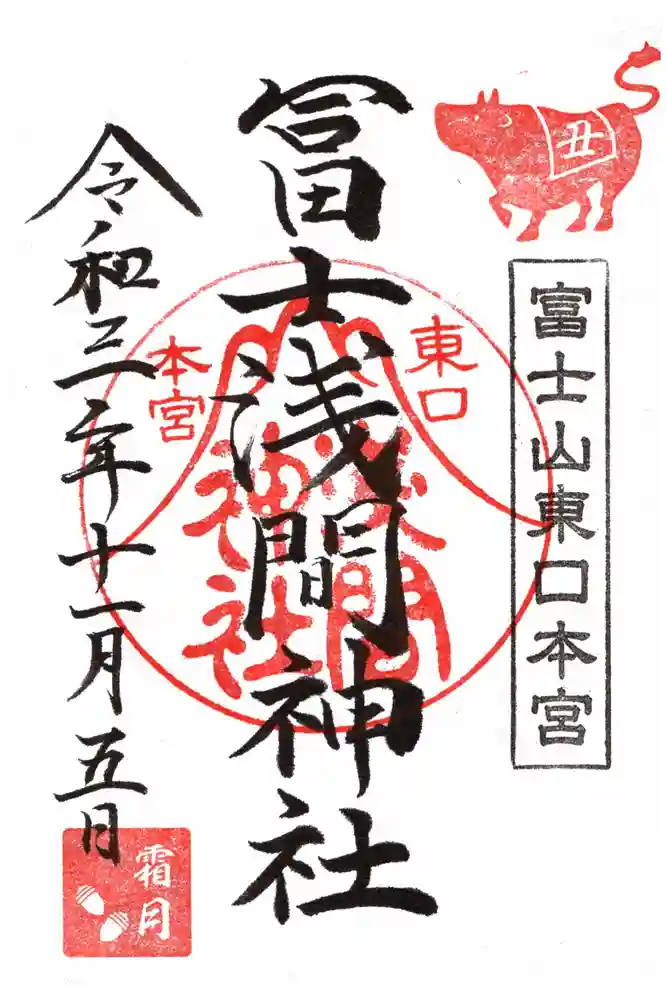 丑
富士山東口本宮
冨士浅間神社
東口
本宮
浅間
神社
令和三年十一月五日
霜月